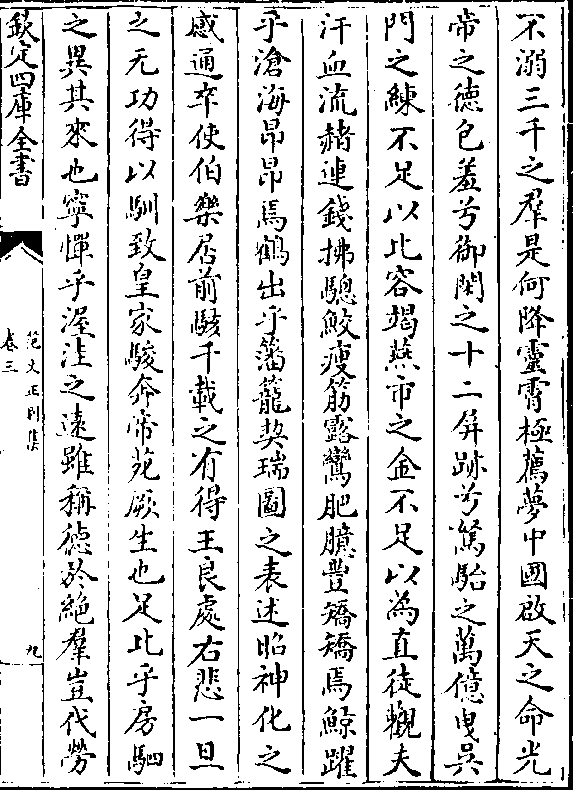 不溺三千之羣是何降靈霄極薦夢中國啟天之命光
帝之德包羞兮御閑之十二屏跡兮駑駘之萬億曳吳
門之練不足以比容竭燕市之金不足以為直徒觀夫
汗血流赭連錢拂驄鮫瘦筋露鸞肥臆豐矯矯焉鯨躍
乎滄海昂昂焉鶴出乎籓籠契瑞圖之表述昭神化之
感通卒使伯樂居前駭千載之有得王良處右悲一旦
之无功得以馴致皇家駿奔帝苑厥生也足比乎房駟
之異其來也寧憚乎渥洼之遠雖稱德於絶羣豈代勞
欽定四庫全書
范文正別集
卷三
九